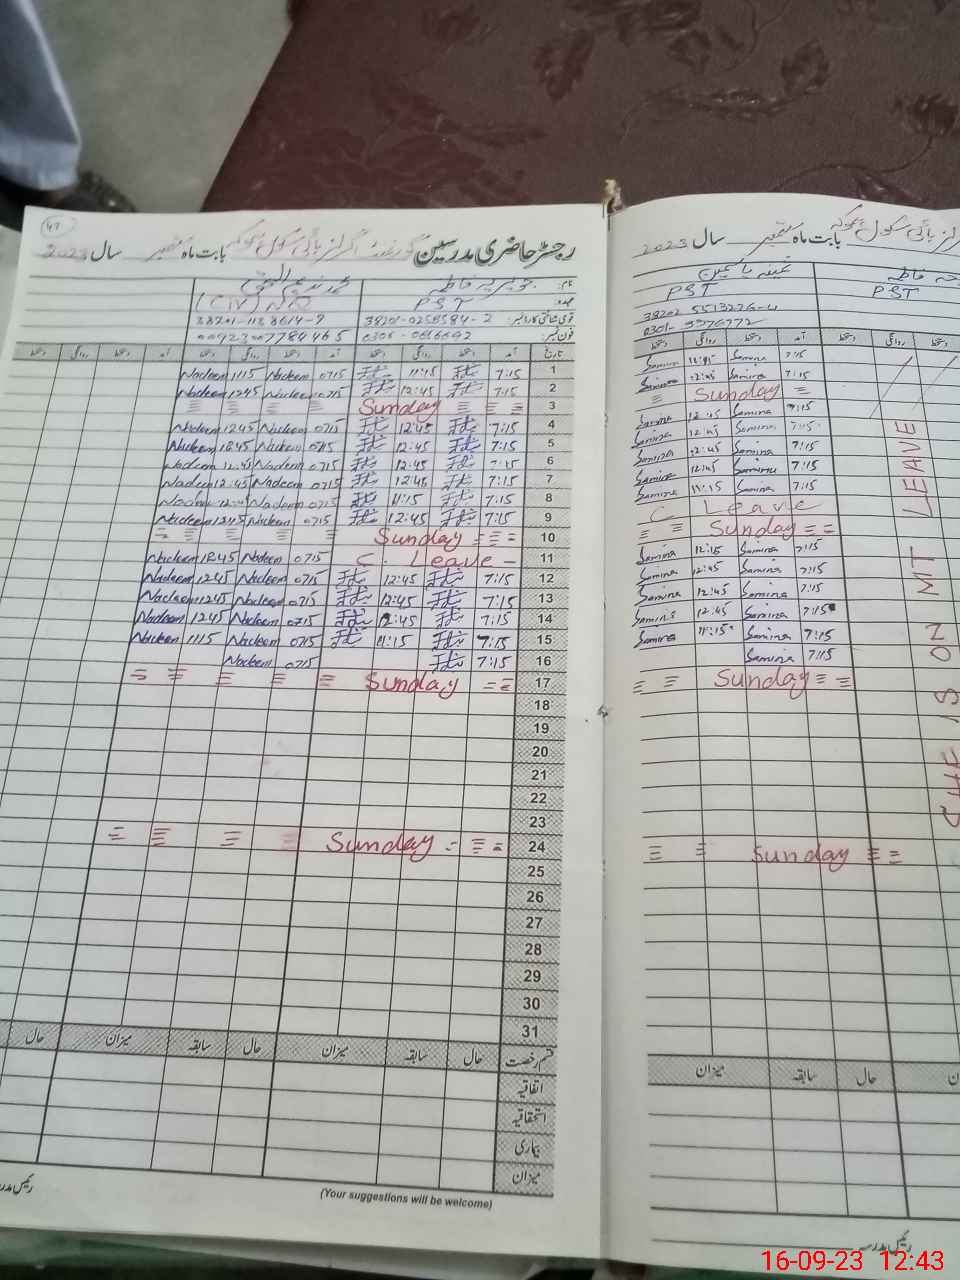 47
رجسٹر حاضری مدرسین گورنمنٹ گرلز ہائی سکول بابت ماہ ستمبر سال 2023
نام: جویریہ فاطمہ محمد ندیم
عہدہ: PST
قومی شناختی کارڈ نمبر: 38201-0258584-2
فون نمبر: 0306-0616692 00923007784465
تاریخ آمد دستخط روانگی دستخط آمد دستخط روانگی دستخط آمد دستخط روانگی دستخط
1 7:15 11:15 0715 Nadeem 1115 Nadeem
2 7:15 12:45 0715 Nadeem 1245 Nadeem
3 Sunday
4 7:15 12:45 0715 Nadeem 1245 Nadeem
5 7:15 12:45 0715 Nadeem 1245 Nadeem
6 7:15 12:45 0715 Nadeem 12:45 Nadeem
7 7:15 12:45 0715 Nadeem 12:45 Nadeem
8 7:15 11:15 0715 Nadeem Nadeem
9 7:15 12:45 0715 Nadeem 1245 Nadeem
10 Sunday
11 C. Leave 0715 Nadeem 1245 Nadeem
12 7:15 12:45 0715 Nadeem 1245 Nadeem
13 7:15 12:45 0715 Nadeem 1245 Nadeem
14 7:15 12:45 0715 Nadeem 1245 Nadeem
15 7:15 11:15 0715 Nadeem 1115 Nadeem
16 7:15 0715 Nadeem
17 Sunday
18
19
20
21
22
23
24 Sunday
25
26
27
28
29
30
31
قسم رخصت حال سابقہ میزان حال سابقہ میزان حال
اتفاقیہ
استحقاقیہ
بیماری
میزان
(Your suggestions will be welcome)
رئیس مدر
گرلز ہائی سکول بابت ماہ ستمبر سال 2023
فاطمہ ثمینہ یاسمین
PST PST
38202 5513276-4
0301-
روانگی دستخط آمد دستخط روانگی دستخط
7:15 Samina 11:15 Samina
7:15 Samina 12:45 Samina
Sunday
7:15 Samina 12:45 Samina
7:15 Samina 12:45 Samina
7:15 Samina 12:45 Samina
7:15 Samina 12:45 Samina
7:15 Samina 11:15 Samina
C Leave
Sunday
7:15 Samina 12:15 Samina
7:15 Samina 12:45 Samina
7:15 Samina 12:45 Samina
7:15 Samina 12:45 Samina
7:15 Samina 11:15 Samina
7:15 Samina
Sunday
Sunday
SHE IS ON MT LEAVE
حال سابقہ میزان
رئیس مدرسہ
16-09-23 12:43